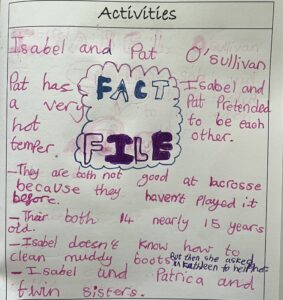 Activities
Isabel and Pat O'Sullivan
Pat has
a very
hot
temper.
FACT
FILE
Isabel and
Pat Pretended
to be each
other.
-They are both not good at lacrosse
because they haven't played it
before.
-Their both 14 nearly 15 years
old.
-Isabel doesn't know how to
clean muddy boots But then she asked
Kathleen to help her
-Isabel and Patrica and
twin sisters.